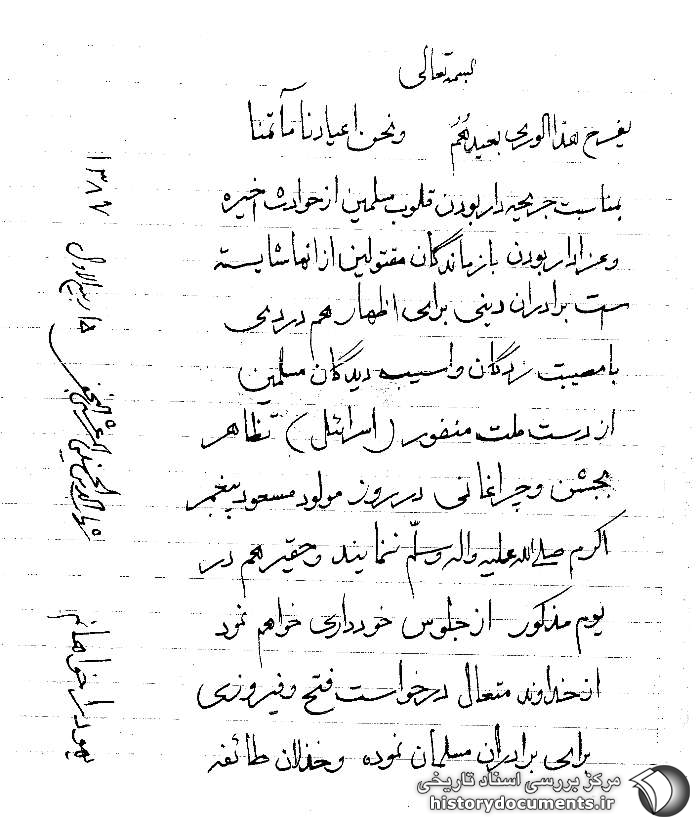 بسمه تعالی
یفرح هذا الوری بعیدهُم ونحن اعیادنا مآتمنا
بمناسبت جریحه دار بودن قلوب مسلمین از حوادث اخیره
وعزادار بودن بازماندگان مقتولین از انها شایسته
است برادران دینی برای اظهار هم دردی
با مصیبت زدگان واسیب دیدگان مسلمین
از دست ملت منفور (اسرائیل) تظاهر
بجشن وچراغانی در روز مولود مسعود پیغمبر
اکرم صلی الله علیه واله وسلّم ننمایند وحقیر هم در
یوم مذکور از جلوس خودداری خواهم نمود
از خداوند متعال درخواست فتح وفیروزی
برای برادران مسلمان نموده وخذلان طائفه
یهود را خواهانم
شهاب الدین الحسینی المرعشی النجفی
ربیع الاول ۱۳۸۷
مرکز بررسی اسناد تاریخی
historydocuments.ir